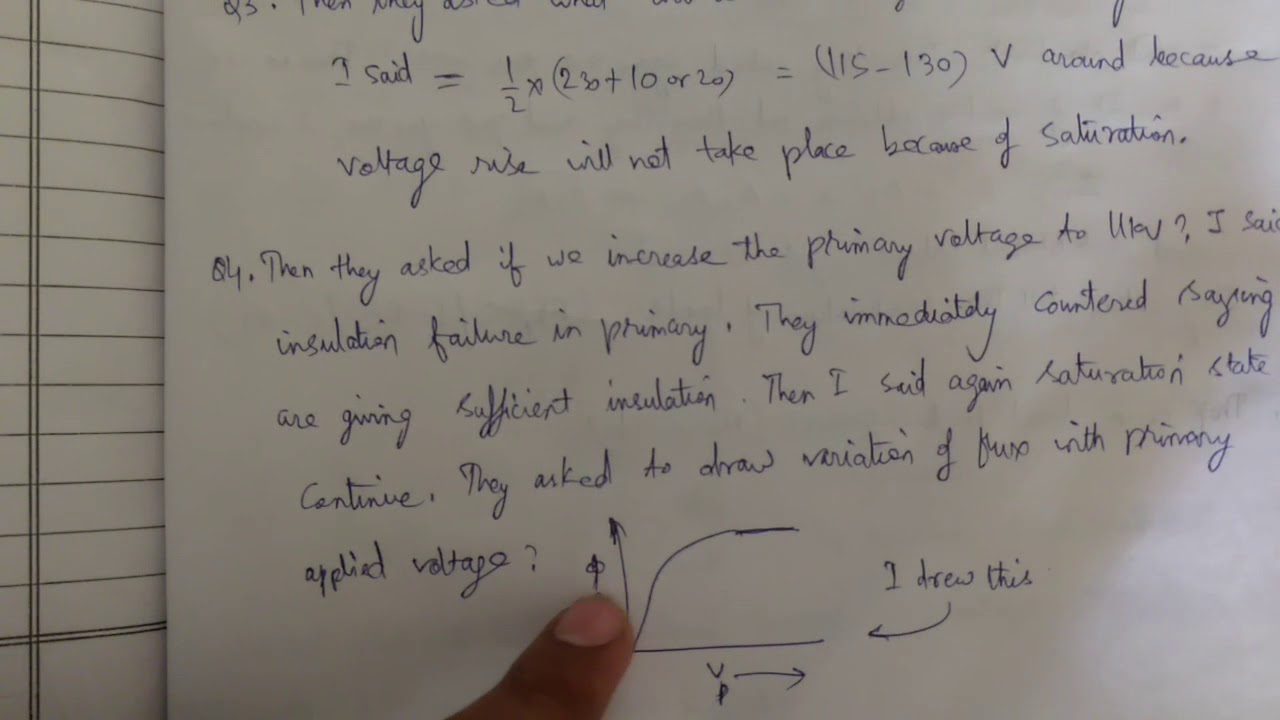 Q3. Then they asked what
I said = 1/2 × (230 + 10 or 20) = (115 - 130) V around because
voltage rise will not take place because of saturation.
Q4. Then they asked if we increase the primary voltage to 11kV?, I said
insulation failure in primary. They immediately countered saying
are giving sufficient insulation. Then I said again saturation state
Continue. They asked to draw variation of flux with primary
applied voltage?
ϕ
I drew this
Vp